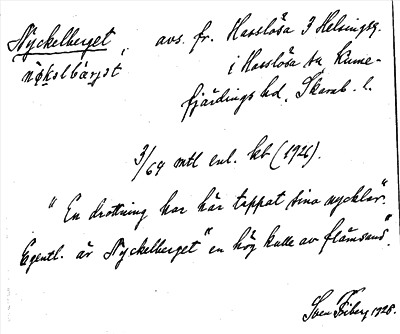 Nyckelberget, avs. fr. Hasslösa 3 Helsingsg.
nỳkəlbær̨ət i Hasslösa sn Kinne-
fjärdings hd. Skarab. l.
3/64 mtl enl. kb (1926).
"En drottning har här tappat sina nycklar".
Egentl. är Nyckelberget "en hög kulle av flämsand".
Sven Ekberg 1928.